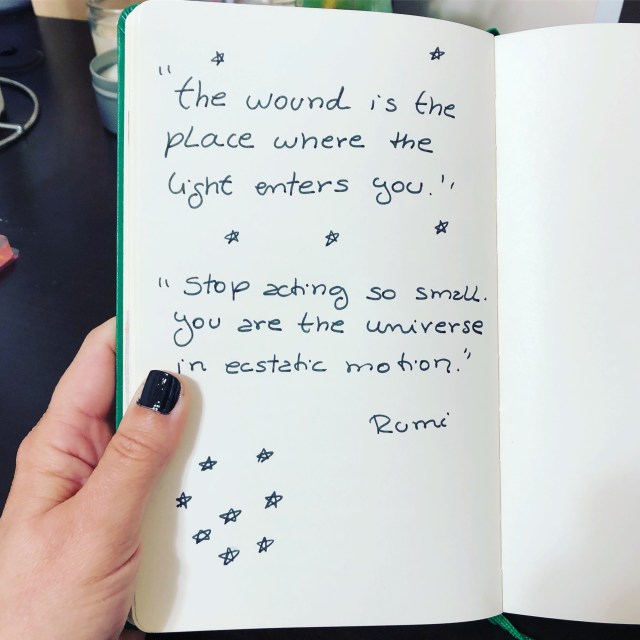 "the wound is the
place where the
light enters you."
"Stop acting so small.
you are the universe
in ecstatic motion."
Rumi